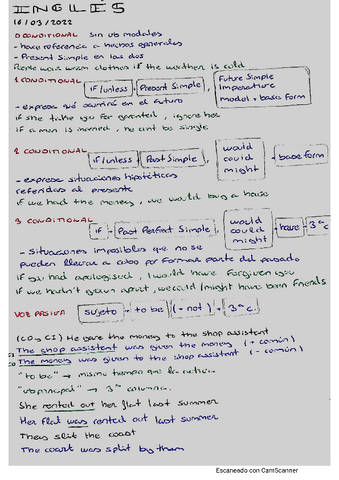 INGLÉS
16/03/2022
0 CONDITIONAL sin vb modales
- hace referencia a hechos generales
- Present Simple en las dos
People wear warm clothes if the weather is cold
1 CONDITIONAL if/unless + Present Simple, Future Simple
Imperative
modal + base form
- expresa qué ocurrirá en el futuro
if she take you for granted, ignore her
if a man is married, he can't be single
2 CONDITIONAL if/unless + Past Simple, would
could
might + base form
- expresa situaciones hipotéticas
referidas al presente
if we had the money, we would buy a house
3 CONDITIONAL if + Past Perfect Simple, would
could
might + have + 3ª c
- Situaciones imposibles que no se
pueden llevar a cabo por formar parte del pasado
if you had apologised, I would have forgiven you
if we hadn't grown apart, we could/might have been friends
VOZ PASIVA sujeto + to be (- not) + 3ª c.
(CD y CI) He gave the money to the shop assistant
The shop assistant was given the money (+ común)
The money was given to the shop assistant (- común)
"to be" → mismo tiempo que la activa
"vb principal" → 3ª columna.
She rented out her flat last summer
Her flat was rented out last summer
They split the coast
The coast was split by them
Escaneado con CamScanner